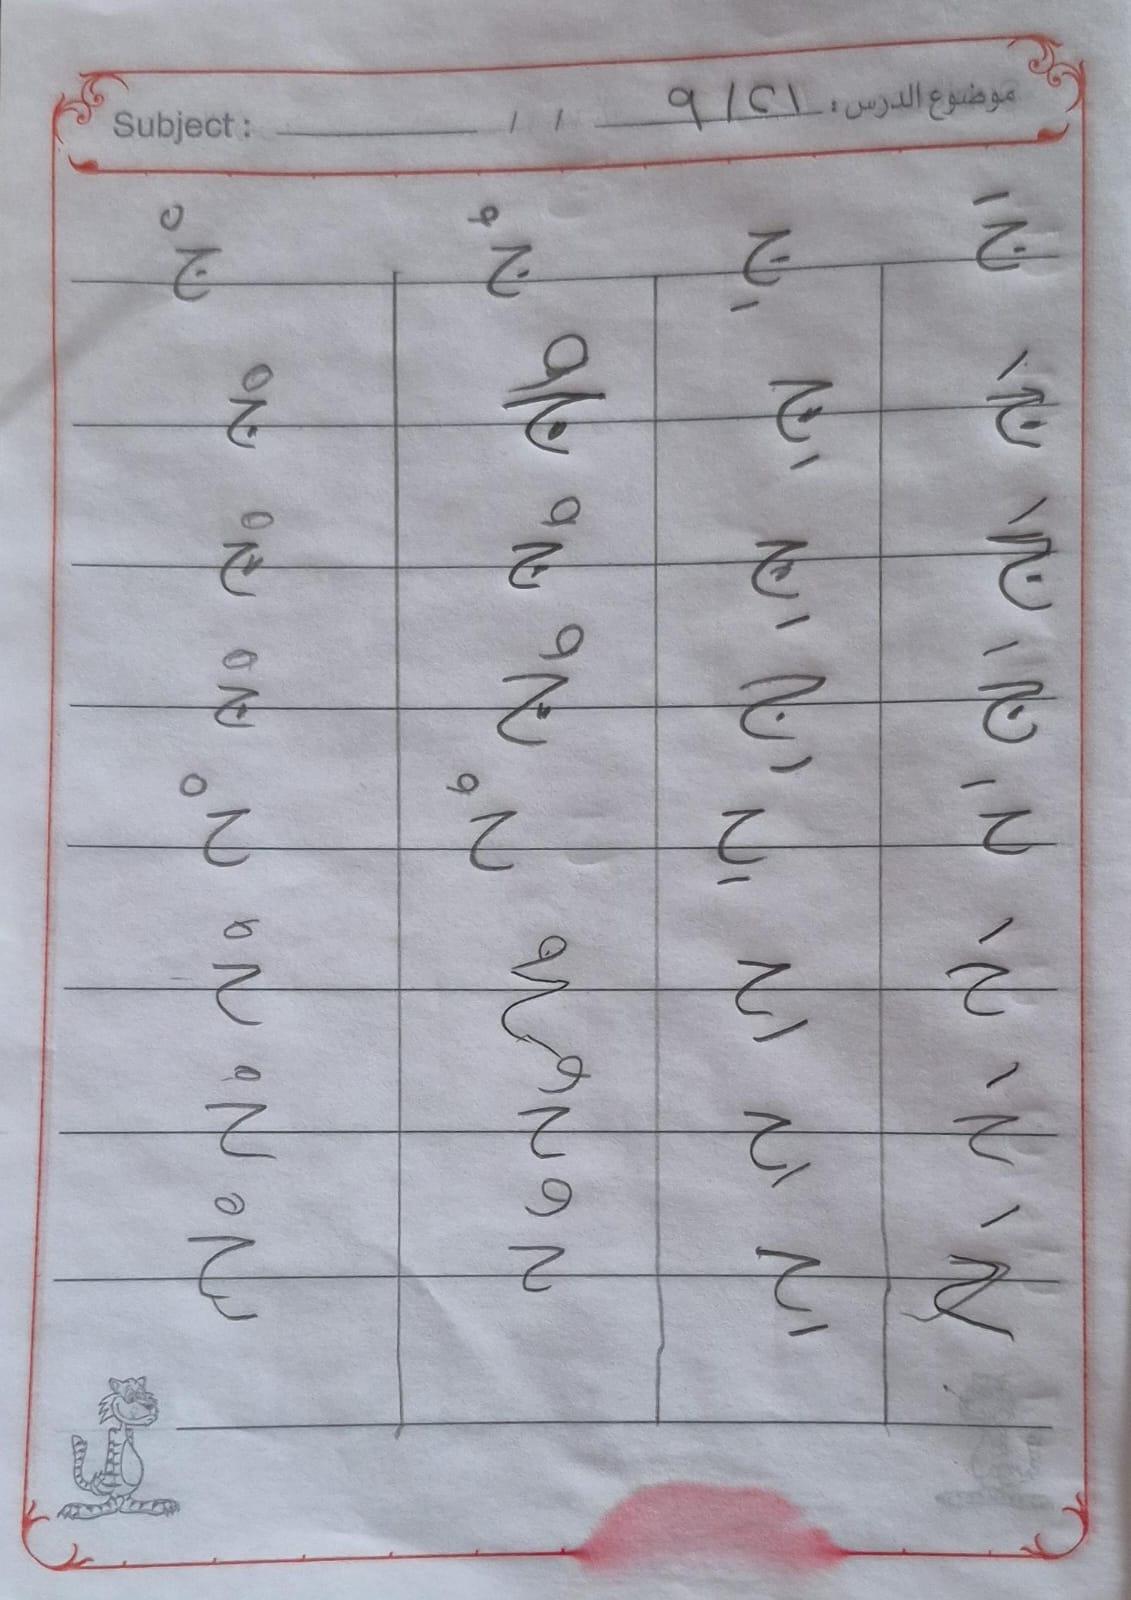 موضوع الدرس: ٩/٢١ / / Subject:
جَ جِ جُ جْ
جَ جِ جُ جْ
جَ جِ جُ جْ
جَ جِ جُ جْ
حَ حِ حُ حْ
حَ حِ حُ حْ
حَ حِ حُ حْ
حَ حِ حُ حْ